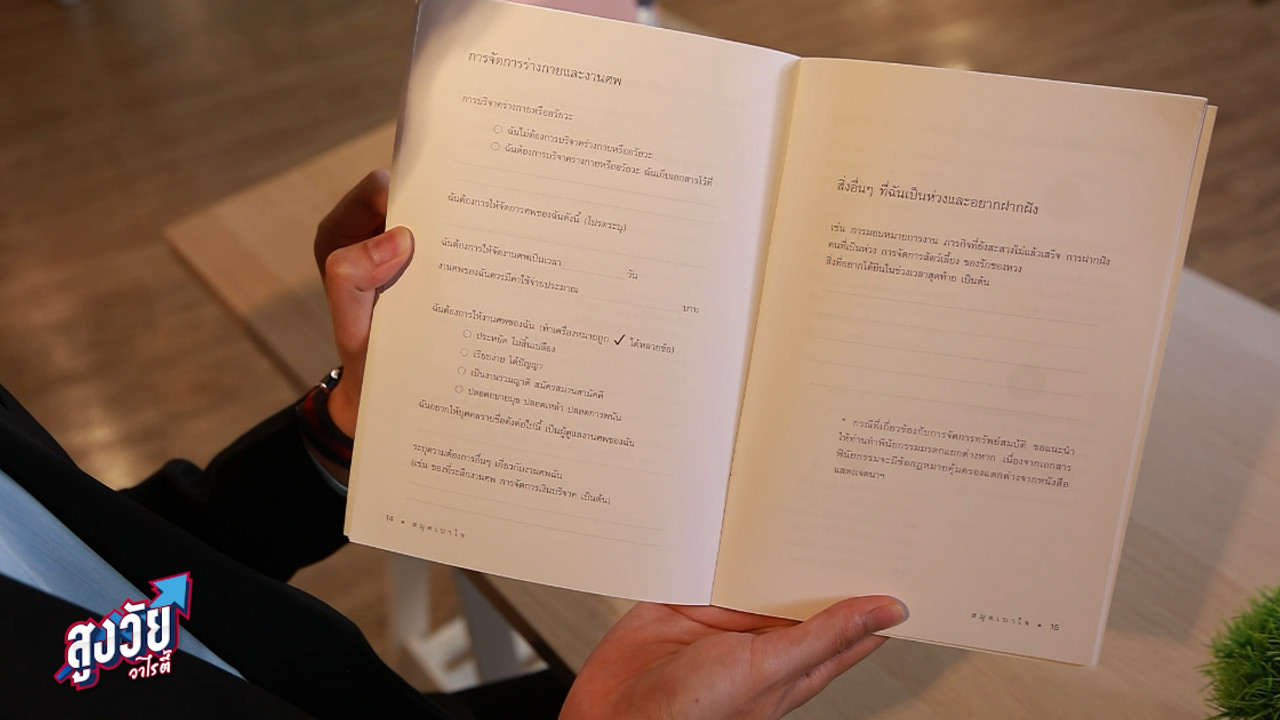 การจัดการร่างกายและงานศพ
การบริจาคร่างกายหรืออวัยวะ
ฉันไม่ต้องการบริจาคร่างกายหรืออวัยวะ
ฉันต้องการบริจาคร่างกายหรืออวัยวะ ฉันเก็บเอกสารไว้ที่
ฉันต้องการให้จัดการศพของฉันดังนี้ (โปรดระบุ)
ฉันต้องการให้จัดงานศพเป็นเวลา วัน
งานศพของฉันควรมีค่าใช้จ่ายประมาณ บาท
ฉันต้องการให้งานศพของฉัน (ทำเครื่องหมายถูก ✓ ได้หลายข้อ)
ประหยัด ไม่สิ้นเปลือง
เรียบง่าย ได้ปัญญา
เป็นงานรวมญาติ สมัครสมานสามัคคี
ปลอดอบายมุข ปลอดเหล้า ปลอดการพนัน
ฉันอยากให้บุคคลรายชื่อดังต่อไปนี้ เป็นผู้ดูแลงานศพของฉัน
ระบุความต้องการอื่นๆ เกี่ยวกับงานศพฉัน
(เช่น ของที่ระลึกงานศพ การจัดการเงินบริจาค เป็นต้น)
14 • สมุดเบาใจ
สิ่งอื่นๆ ที่ฉันเป็นห่วงและอยากฝากฝัง
เช่น การมอบหมายการงาน ภารกิจที่ยังสะสางไม่แล้วเสร็จ การฝากฝัง
คนที่เป็นห่วง การจัดการสัตว์เลี้ยง ของรักของหวง
สิ่งที่อยากได้ยินในช่วงเวลาสุดท้าย เป็นต้น
* กรณีที่เกี่ยวข้องกับการจัดการทรัพย์สมบัติ ขอแนะนำ
ให้ท่านทำพินัยกรรมมรดกแยกต่างหาก เนื่องจากเอกสาร
พินัยกรรมจะมีข้อกฎหมายคุ้มครองแตกต่างจากหนังสือ
แสดงเจตนาฯ
สมุดเบาใจ • 15
สูงวัย
วาไรตี้